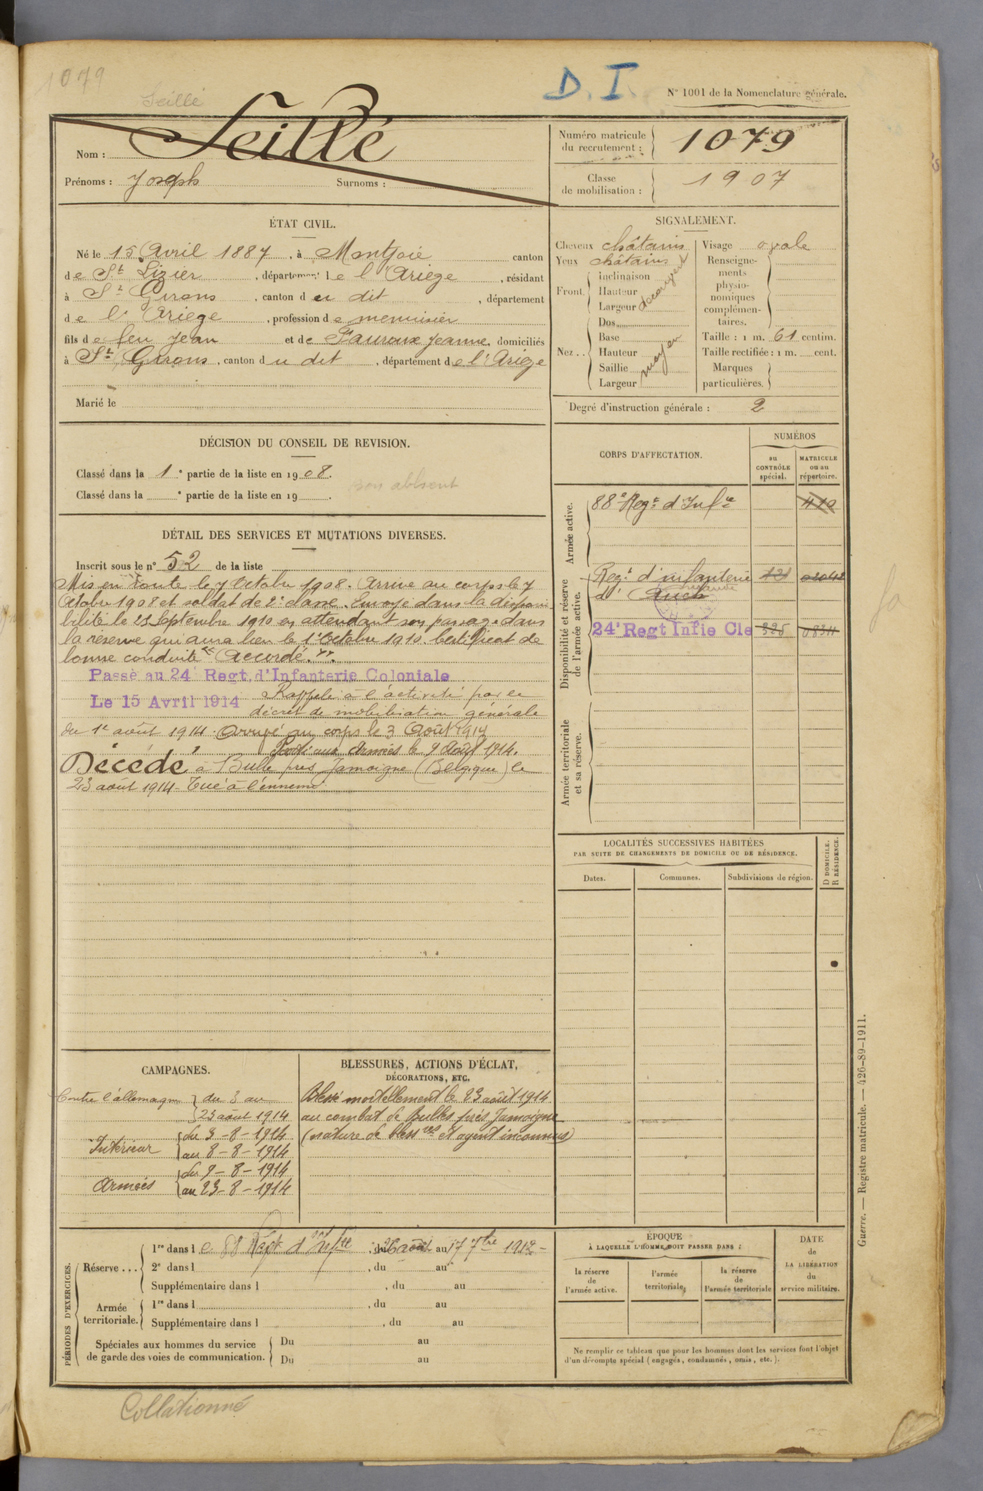 1079
Seillé
D. I.
N° 1001 de la Nomenclature générale.
Nom : Seillé
Prénoms : Joseph Surnoms :
Numéro matricule du recrutement : 1079
Classe de mobilisation : 1907
ÉTAT CIVIL.
Né le 15 Avril 1887, à Montjoie canton
de St Lizier, département de l'Ariège, résidant
à St Girons, canton du dit, département
de l'Ariège, profession de menuisier
fils de feu Jean et de Fauroux Jeanne, domiciliés
à St Girons, canton du dit, département de l'Ariège
Marié le
SIGNALEMENT.
Cheveux châtains
Yeux châtains
Front. Inclinaison
Hauteur
Largeur
Nez.. Dos
Base
Hauteur moyen
Saillie
Largeur
Visage ovale
Renseignements physionomiques complémentaires.
Taille : 1 m. 61 centim.
Taille rectifiée : 1 m. cent.
Marques particulières.
Degré d'instruction générale : 2
DÉCISION DU CONSEIL DE REVISION.
Classé dans la 1e partie de la liste en 1908.
Classé dans la e partie de la liste en 19 .
bon absent
DÉTAIL DES SERVICES ET MUTATIONS DIVERSES.
Inscrit sous le n° 52 de la liste
Mis en route le 7 Octobre 1908. Arrivé au corps le 7
Octobre 1908 et soldat de 2e classe. Envoyé dans la disponi
bilité le 25 Septembre 1910 en attendant son passage dans
la réserve qui aura lieu le 1er Octobre 1910. Certificat de
bonne conduite "Accordé."
Passé au 24e Regt. d'Infanterie Coloniale
Le 15 Avril 1914 Rappelé à l'activité par le
décret de mobilisation générale
du 1er août 1914. Arrivé au corps le 3 Août 1914
Parti aux Armées le 9 Août 1914.
Décédé à Bulle près Jamoigne (Belgique) le
23 août 1914. Tué à l'ennemi
CORPS D'AFFECTATION.
NUMÉROS
au CONTRÔLE spécial.
MATRICULE ou au répertoire.
Armée active.
88e Regt d'Infie 419
Disponibilité et réserve de l'armée active.
Regt d'infanterie 121
d'Auch
24e Regt Infie Cle
Armée territoriale et sa réserve.
LOCALITÉS SUCCESSIVES HABITÉES
PAR SUITE DE CHANGEMENTS DE DOMICILE OU DE RÉSIDENCE.
Dates. Communes. Subdivisions de région. D DOMICILE. R RÉSIDENCE.
CAMPAGNES.
Contre l'allemagne du 3 au
23 août 1914
Intérieur du 3-8-1914
au 8-8-1914
Armées du 9-8-1914
au 23-8-1914
BLESSURES, ACTIONS D'ÉCLAT,
DÉCORATIONS, ETC.
Blessé mortellement le 23 août 1914
au combat de Bulles près Jamoigne
(nature de blessres et agent inconnus)
PÉRIODES D'EXERCICES.
Réserve ... 1re dans le 88 Regt d'Infie, du 26 août au 17 7bre 1912
2e dans l , du au
Supplémentaire dans l , du au
Armée territoriale. 1re dans l , du au
Supplémentaire dans l , du au
Spéciales aux hommes du service de garde des voies de communication. Du au
Du au
ÉPOQUE
À LAQUELLE L'HOMME DOIT PASSER DANS :
la réserve de l'armée active.
l'armée territoriale,
la réserve de l'armée territoriale
DATE de LA LIBÉRATION du service militaire.
Ne remplir ce tableau que pour les hommes dont les services font l'objet
d'un décompte spécial (engagés, condamnés, omis, etc.).
Guerre. — Registre matricule. — 426-89-1911.
Collationné